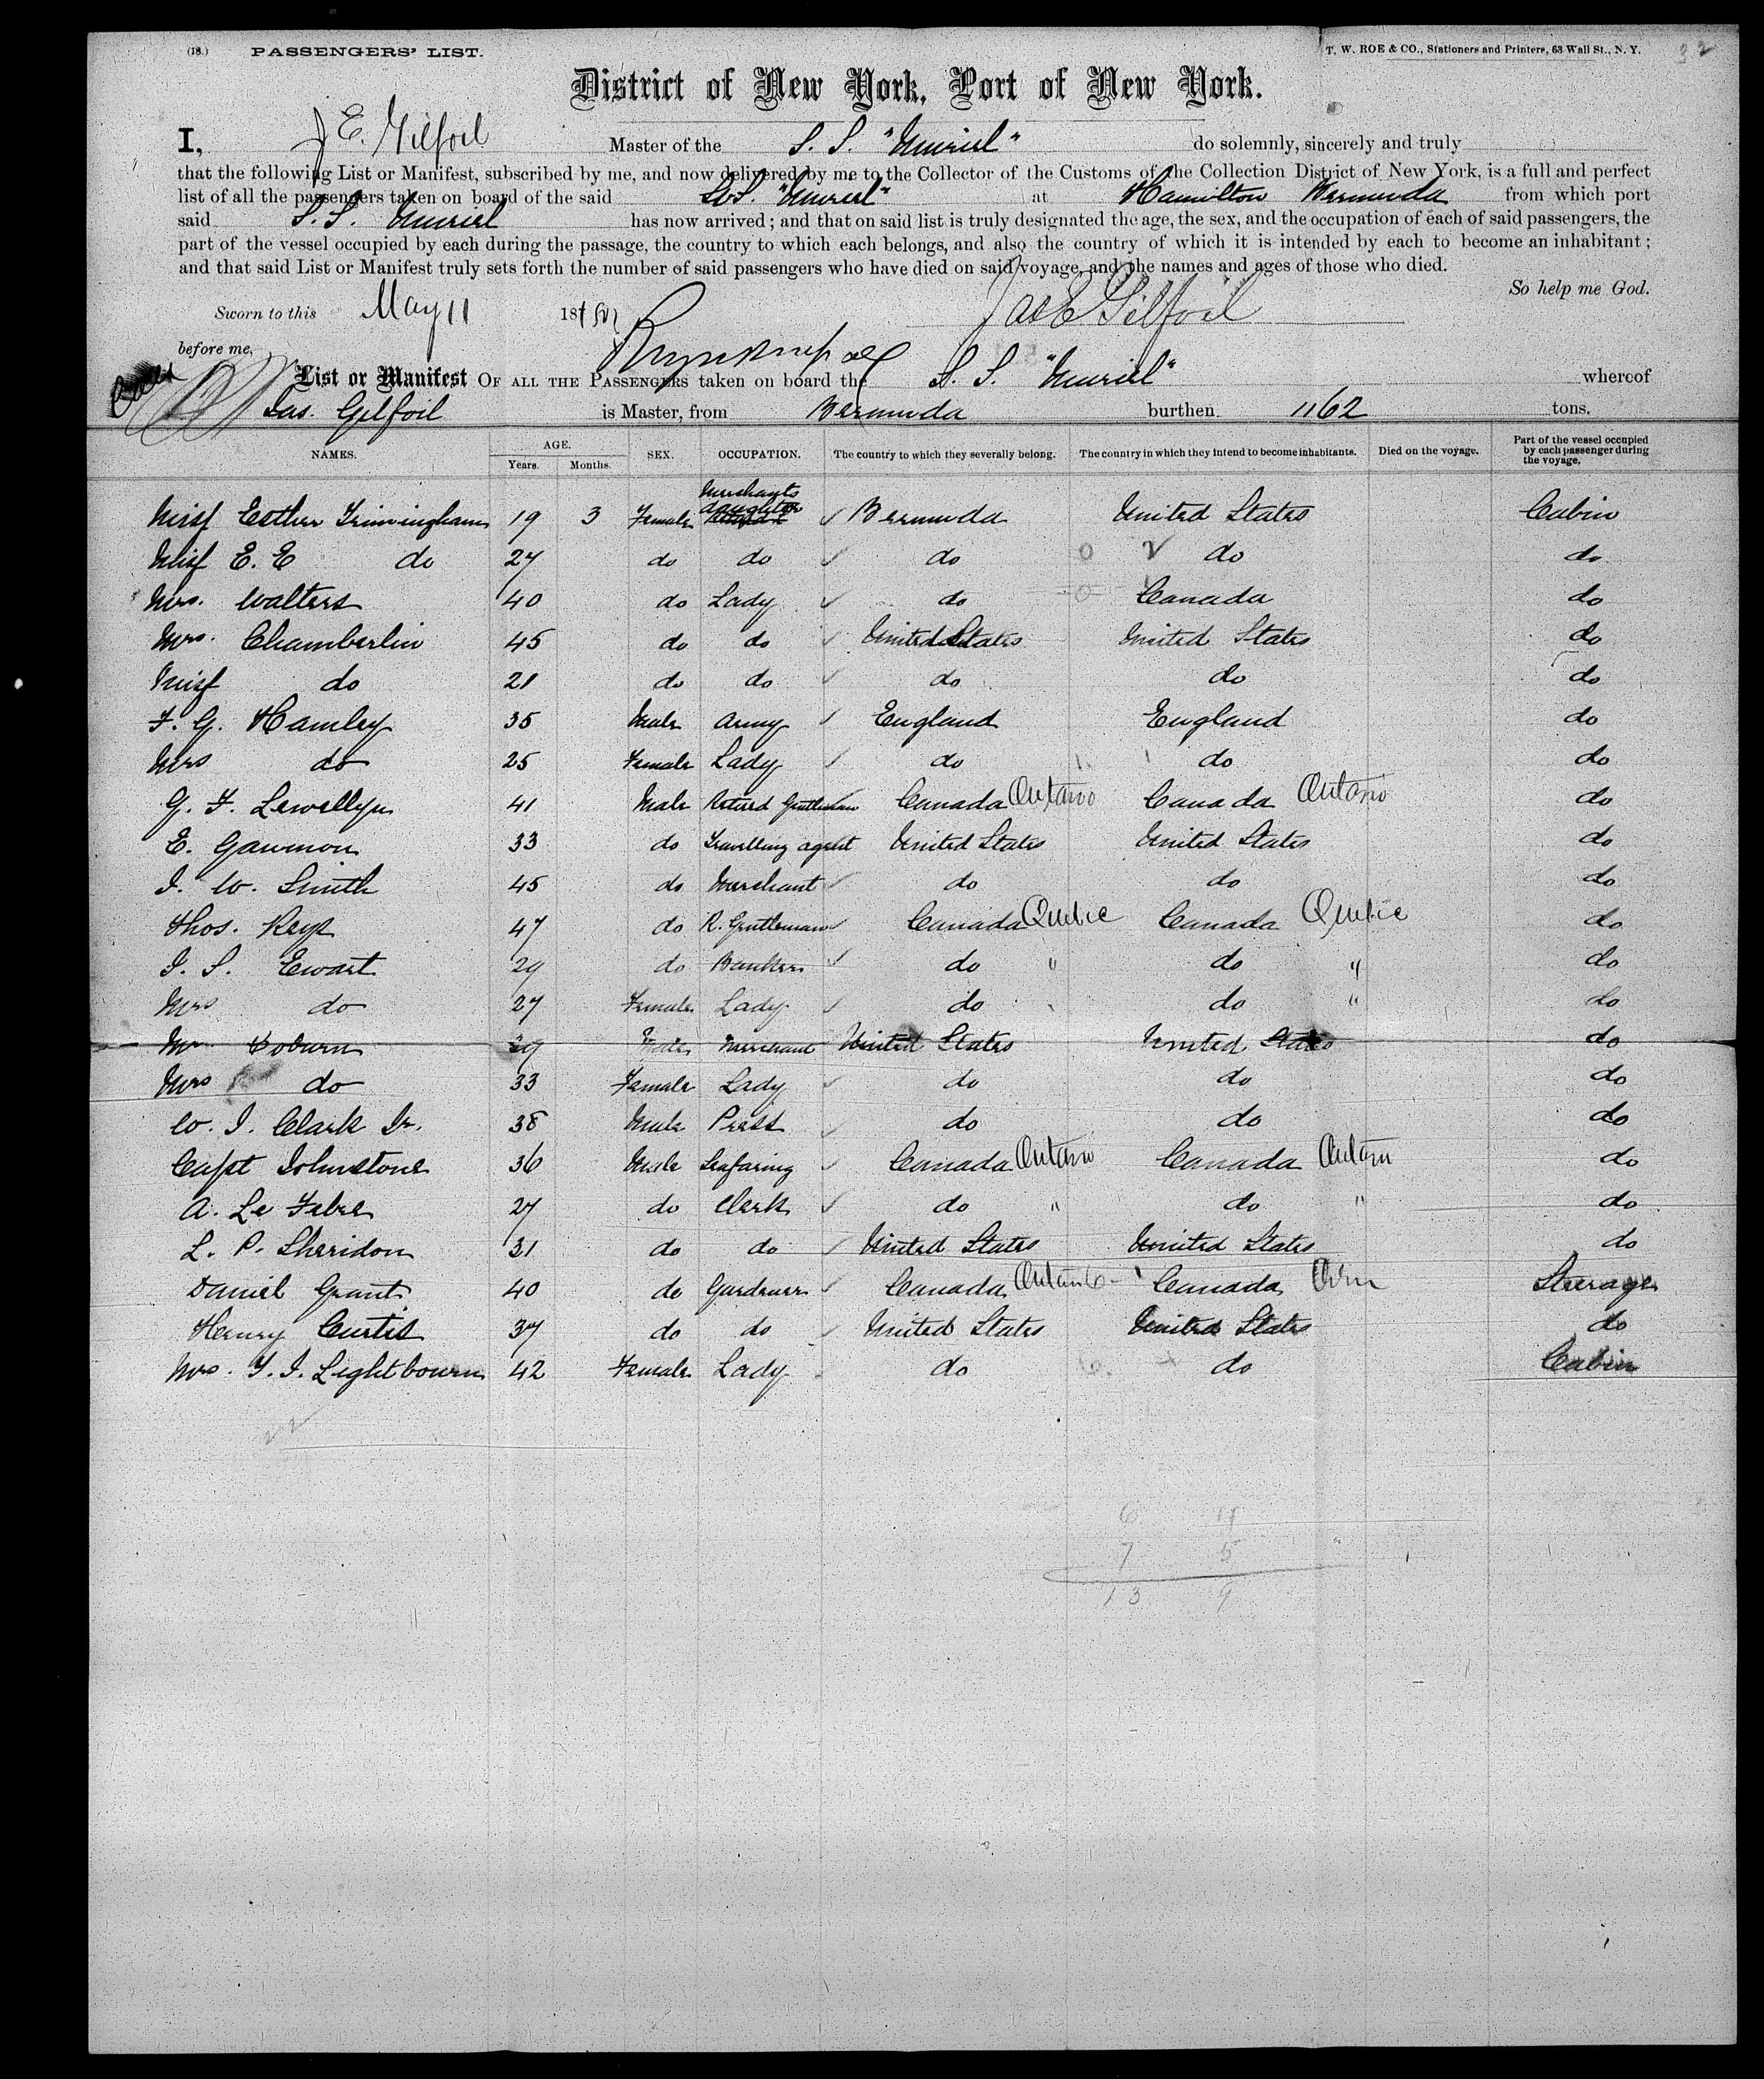 (18.) PASSENGERS' LIST. T. W. ROE & CO., Stationers and Printers, 63 Wall St., N. Y. 32
District of New York, Port of New York.
I, J E. Gilfoil Master of the S. S. "Muriel" do solemnly, sincerely and truly
that the following List or Manifest, subscribed by me, and now delivered by me to the Collector of the Customs of the Collection District of New York, is a full and perfect
list of all the passengers taken on board of the said S.S. "Muriel" at Hamilton Bermuda from which port
said S. S. Muriel has now arrived; and that on said list is truly designated the age, the sex, and the occupation of each of said passengers, the
part of the vessel occupied by each during the passage, the country to which each belongs, and also the country of which it is intended by each to become an inhabitant;
and that said List or Manifest truly sets forth the number of said passengers who have died on said voyage, and the names and ages of those who died.
So help me God.
Sworn to this May 11 18 Jas E Gilfoil
before me,
List or Manifest OF ALL THE PASSENGERS taken on board the S. S. "Muriel" whereof
Jas. Gilfoil is Master, from Bermuda burthen 1162 tons.
NAMES. AGE. Years. Months. SEX. OCCUPATION. The country to which they severally belong. The country in which they intend to become inhabitants. Died on the voyage. Part of the vessel occupied by each passenger during the voyage.
Miss Esther Trimingham 19 3 Female Merchants daughter Bermuda United States Cabin
Miss E. E do 27 do do do do do
Mrs. Walters 40 do Lady do Canada do
Mrs. Chamberlin 45 do do United States United States do
Miss do 21 do do do do do
F. G. Hamley 35 Male Army England England do
Mrs do 25 Female Lady do do do
G. F. Lewellyn 41 Male Retired Gentleman Canada Ontario Canada Ontario do
E. Gawmon 33 do Travelling agent United States United States do
J. W. Smith 45 do Merchant do do do
Thos. Keys 47 do R. Gentleman Canada Quebec Canada Quebec do
J. S. Ewart 29 do Banker do " do " do
Mrs do 27 Female Lady do do " do
Mr Coburn 39 Male Merchant United States United States do
Mrs do 33 Female Lady do do do
W. J. Clark Jr. 38 Male Press do do do
Capt Johnstone 36 Male Seafaring Canada Ontario Canada Ontario do
A. Le Febre 27 do Clerk do " do " do
L. P. Sheridon 31 do do United States United States do
Daniel Grant 40 do Gardener Canada Ontario Canada Steerage
Henry Curtis 37 do do United States United States do
Mrs. T. J. Lightbourn 42 Female Lady do do Cabin
22
6 4
7 5
13 9